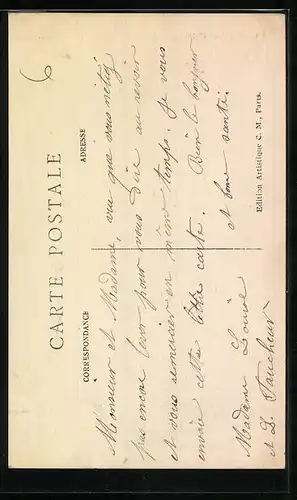 CARTE POSTALE
CORRESPONDANCE
ADRESSE
Monsieur et Madame, vu que vous n'étiez
pas encore levés pour vous dire au revoir
et vous remercier en même temps. Je vous
envoie cette petite carte. Bien le bonjour
et bonne santé.
Madame Louise
et L. Faucheur
Edition Artistique C. M., Paris.